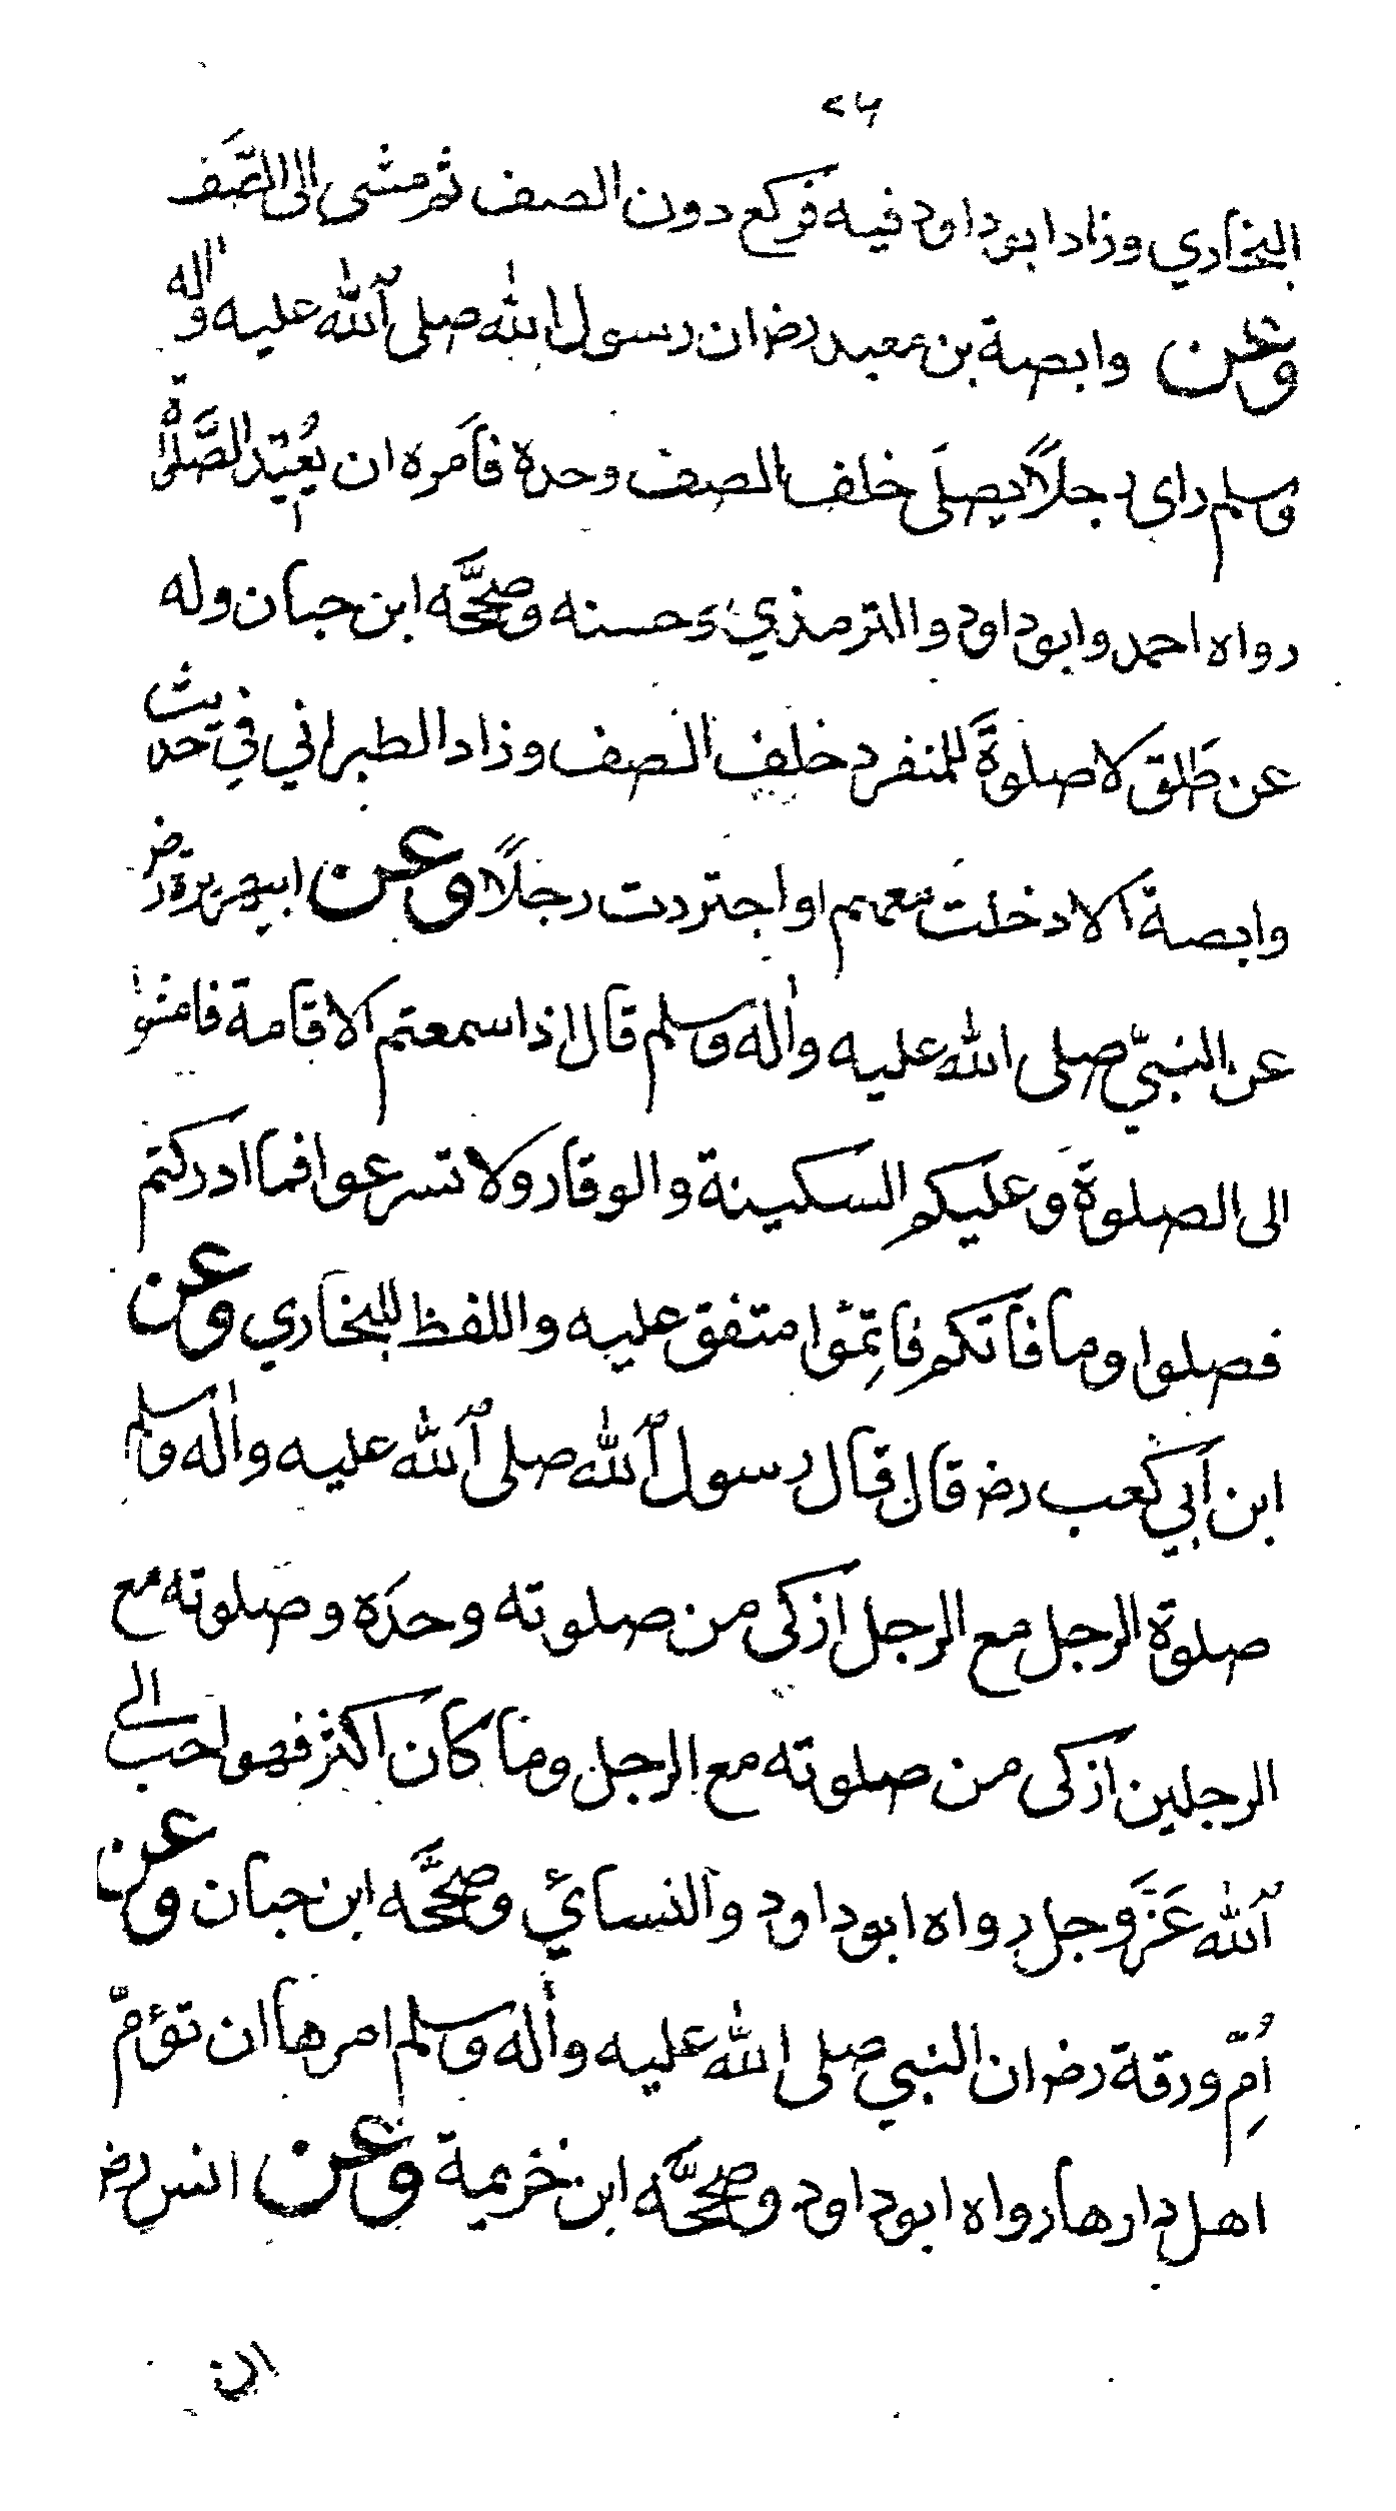 ٢٦
البخاري وزاد ابو داود فيه فركع دون الصف ثم مشى الى الصّف
وعن وابصة بن معبد رض ان رسول الله صلى الله عليه واله
وسلم راى رجلاً يصلَي خلف الصف وحده فأمره ان يُعِيْد الصَّلٰوة
رواه احمد وابو داود والترمذي وحسنه وصحَّحه ابن حبان وله
عن طلق لا صلوة للمنفرد خلف الصف وزاد الطبراني في حديث
وابصة الا دخلت معهم او اجتررت رجلاً وعن ابي هريرة رض
عن النبيّ صلى الله عليه واٰله وسلم قال اذا سمعتم الاقامة فامشوا
الى الصلوة وعليكم السكينة والوقار ولا تسرعوا فما ادركتم
فصلوا وما فأتكم فأتِمّوا متفق عليه واللفظ للبخاري وعن
ابن أبي كعب رض قال قال رسول الله صلى الله عليه واٰله وسلم
صلوة الرجل مع الرجل ازكى من صلوته وحدَه وصلوته مع
الرجلين ازكى من صلوته مع الرجل وما كان اكثر فهو احب الى
الله عَزَّ وجل رواه ابو داود والنسائي وصحَّحه ابن حبان وعن
اُمِّ ورقة رض ان النبي صلى الله عليه واٰله وسلم امرها ان تؤمّ
اهل دارها رواه ابو داود وصحَّحه ابن خزيمة وعن انس رض
ان